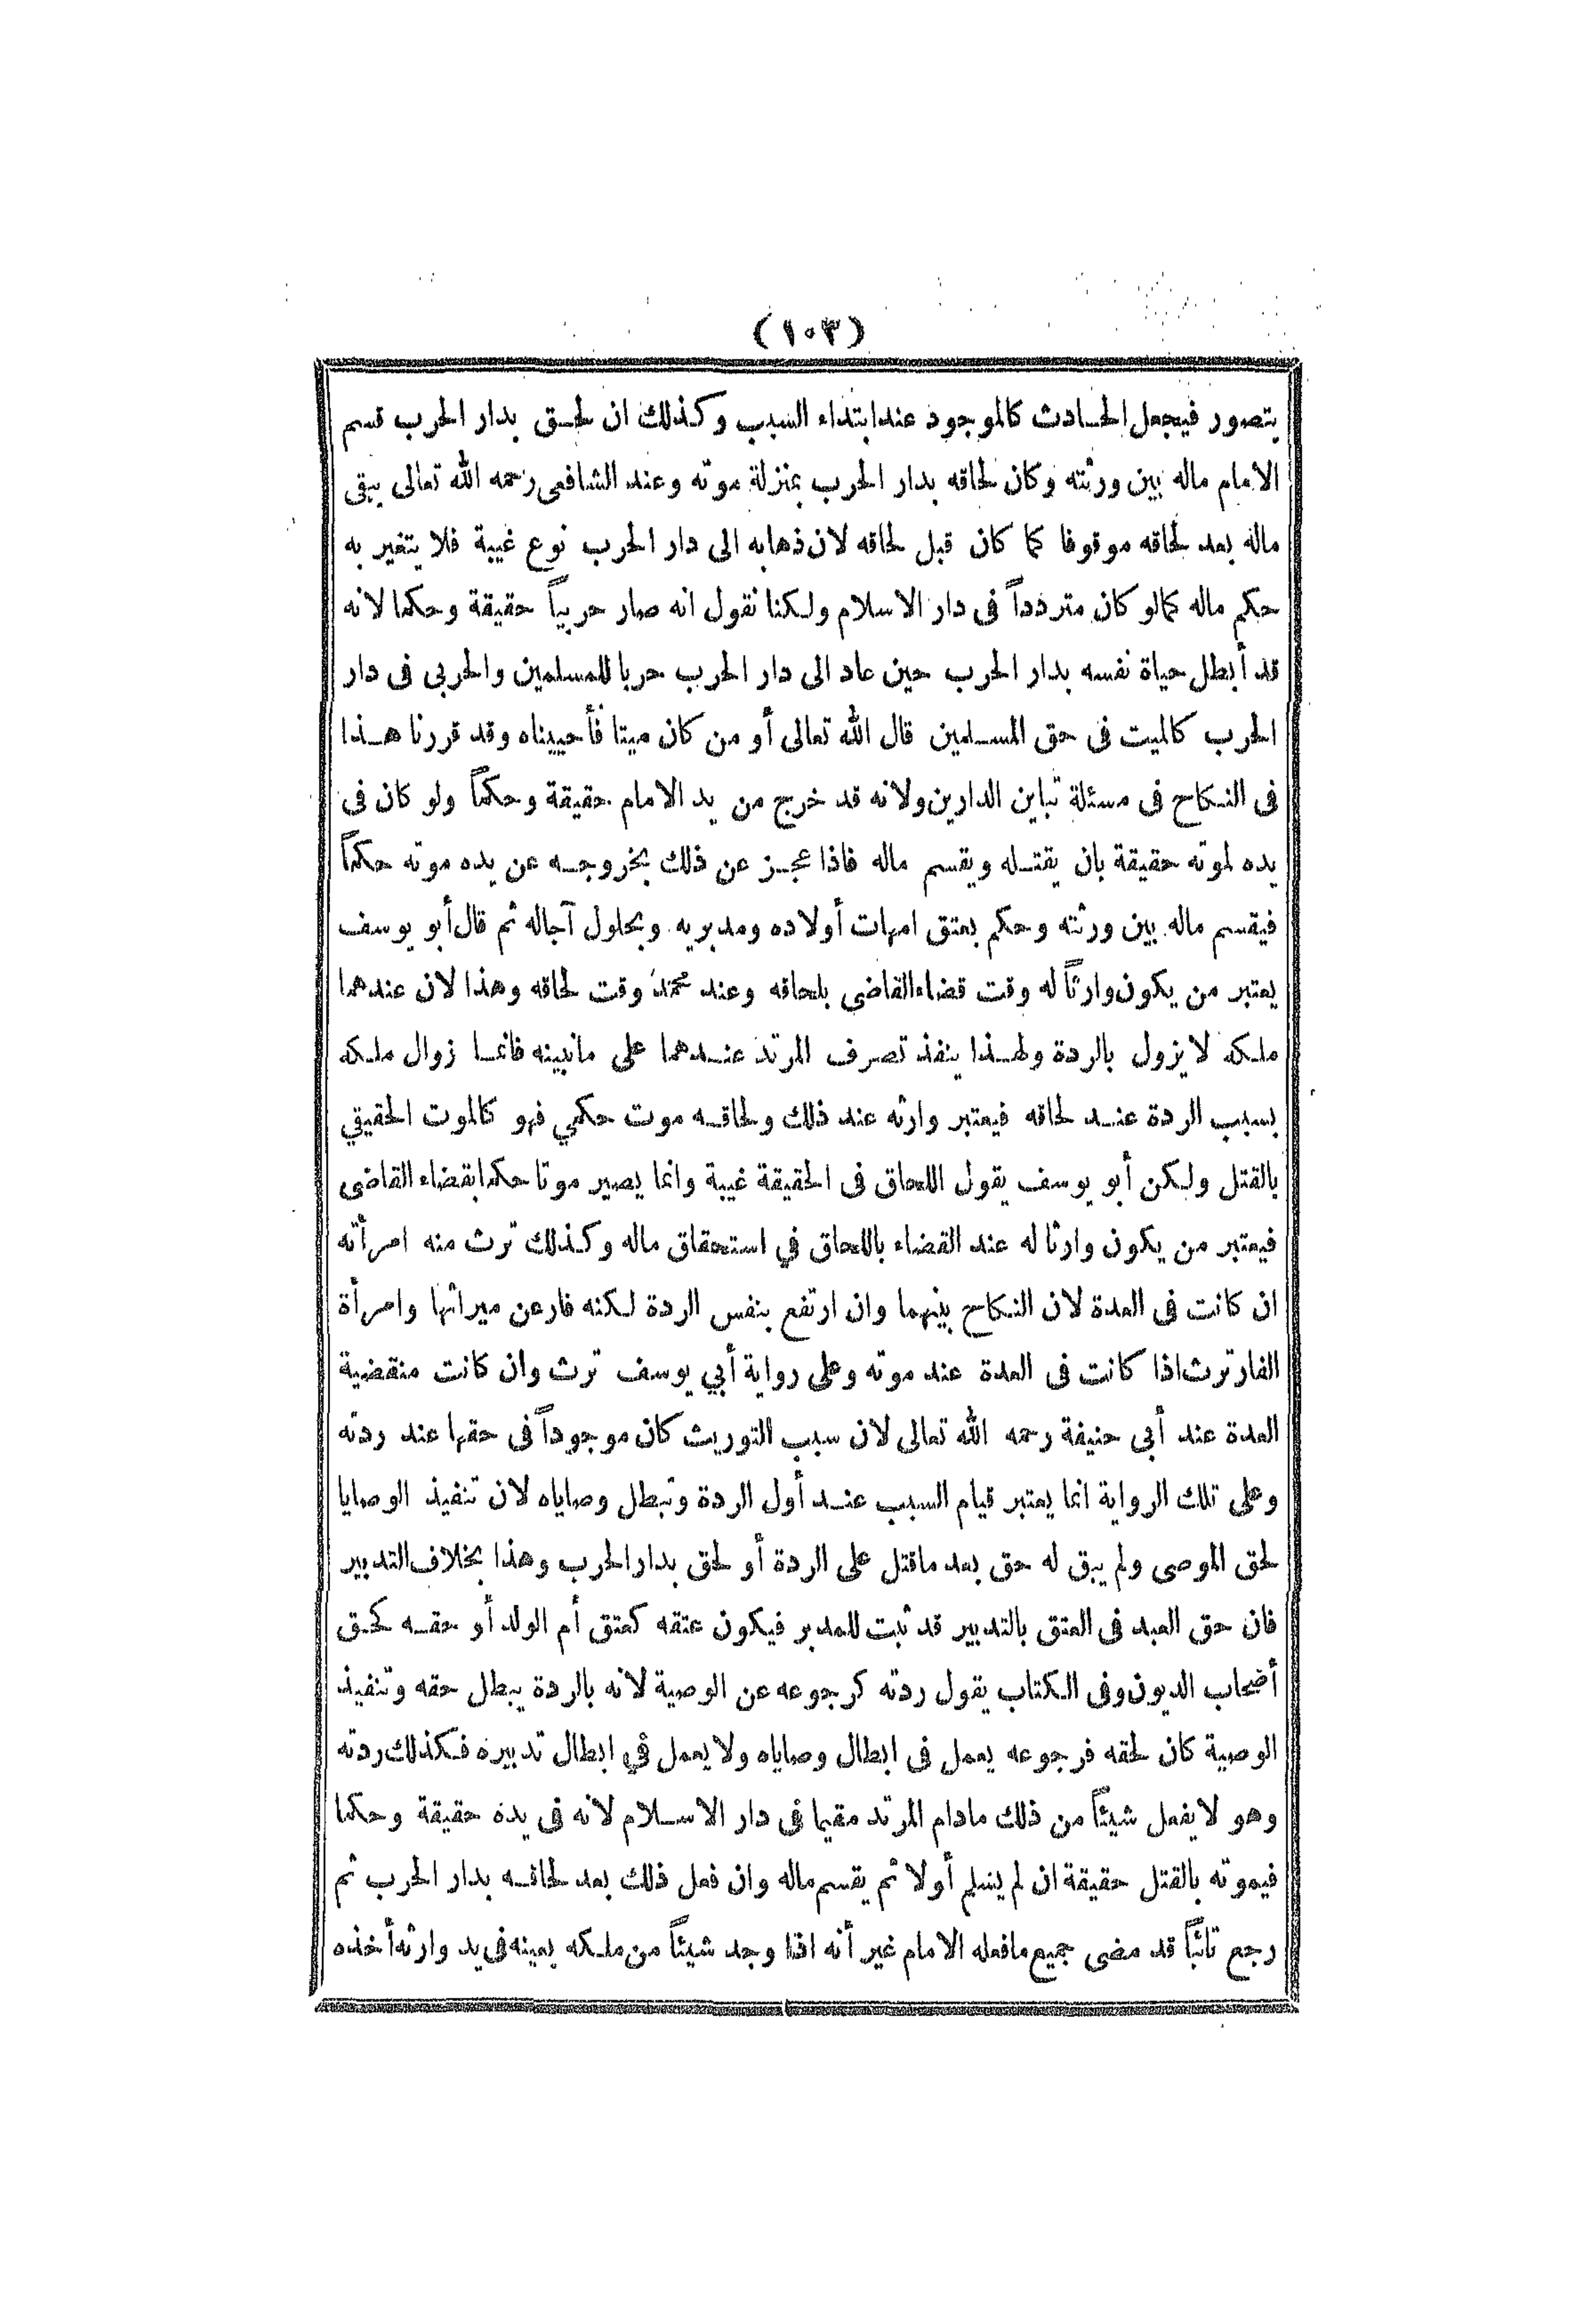 (١٠٣)
يتصور فيجعل الحادث كالموجود عند ابتداء السبب وكذلك ان لحق بدار الحرب قسم
الامام ماله بين ورثته وكان لحاقه بدار الحرب بمنزلة موته وعند الشافعى رحمه الله تعالى يبقى
ماله بعد لحاقه موقوفا كما كان قبل لحاقه لان ذهابه الى دار الحرب نوع غيبة فلا يتغير به
حكم ماله كما لو كان مترددآً فى دار الاسلام ولكنا نقول انه صار حربياً حقيقة وحكما لانه
قد أبطل حياة نفسه بدار الحرب حين عاد الى دار الحرب حربا للمسلمين والحربى فى دار
الحرب كالميت فى حق المسلمين قال الله تعالى أو من كان ميتا فأحييناه وقد قررنا هذا
فى النكاح فى مسئلة تباين الدارين ولانه قد خرج من يد الامام حقيقة وحكماً ولو كان فى
يده لموته حقيقة بان يقتله ويقسم ماله فاذا عجز عن ذلك بخروجه عن يده موته حكماً
فيقسم ماله بين ورثته وحكم بعتق امهات أولاده ومدبريه وبحلول آجاله ثم قال أبو يوسف
يعتبر من يكون وارثاً له وقت قضاء القاضى بلحاقه وعند محمد وقت لحاقه وهذا لان عندهما
ملكه لا يزول بالردة ولهذا ينفذ تصرف المرتد عندهما على ما نبينه فانما زوال ملكه
بسبب الردة عند لحاقه فيعتبر وارثه عند ذلك ولحاقه موت حكمي فهو كالموت الحقيقي
بالقتل ولكن أبو يوسف يقول اللحاق فى الحقيقة غيبة وانما يصير موتا حكما بقضاء القاضى
فيعتبر من يكون وارثا له عند القضاء باللحاق في استحقاق ماله وكذلك ترث منه امرأته
ان كانت فى العدة لان النكاح بينهما وان ارتفع بنفس الردة لكنه فار عن ميراثها وامرأة
الفار ترث اذا كانت فى العدة عند موته وعلى رواية أبي يوسف ترث وان كانت منقضية
العدة عند أبى حنيفة رحمه الله تعالى لان سبب التوريث كان موجوداً فى حقها عند ردته
وعلى تلك الرواية انما يعتبر قيام السبب عند أول الردة وتبطل وصاياه لان تنفيذ الوصايا
لحق الموصى ولم يبق له حق بعد ما قتل على الردة أو لحق بدار الحرب وهذا بخلاف التدبير
فان حق العبد فى العتق بالتدبير قد ثبت للمدبر فيكون عتقه كعتق أم الولد أو حقه كحق
أصحاب الديون وفى الكتاب يقول ردته كرجوعه عن الوصية لانه بالردة يبطل حقه وتنفيذ
الوصية كان لحقه فرجوعه يعمل فى ابطال وصاياه ولا يعمل في ابطال تدبيره فكذلك ردته
وهو لا يفعل شيئاً من ذلك مادام المرتد مقيما فى دار الاسلام لانه فى يده حقيقة وحكما
فيموته بالقتل حقيقة ان لم يسلم أولا ثم يقسم ماله وان فعل ذلك بعد لحاقه بدار الحرب ثم
رجع تائباً قد مضى جميع ما فعله الامام غير أنه اذا وجد شيئاً من ملكه بعينه فى يد وارثه أخذه